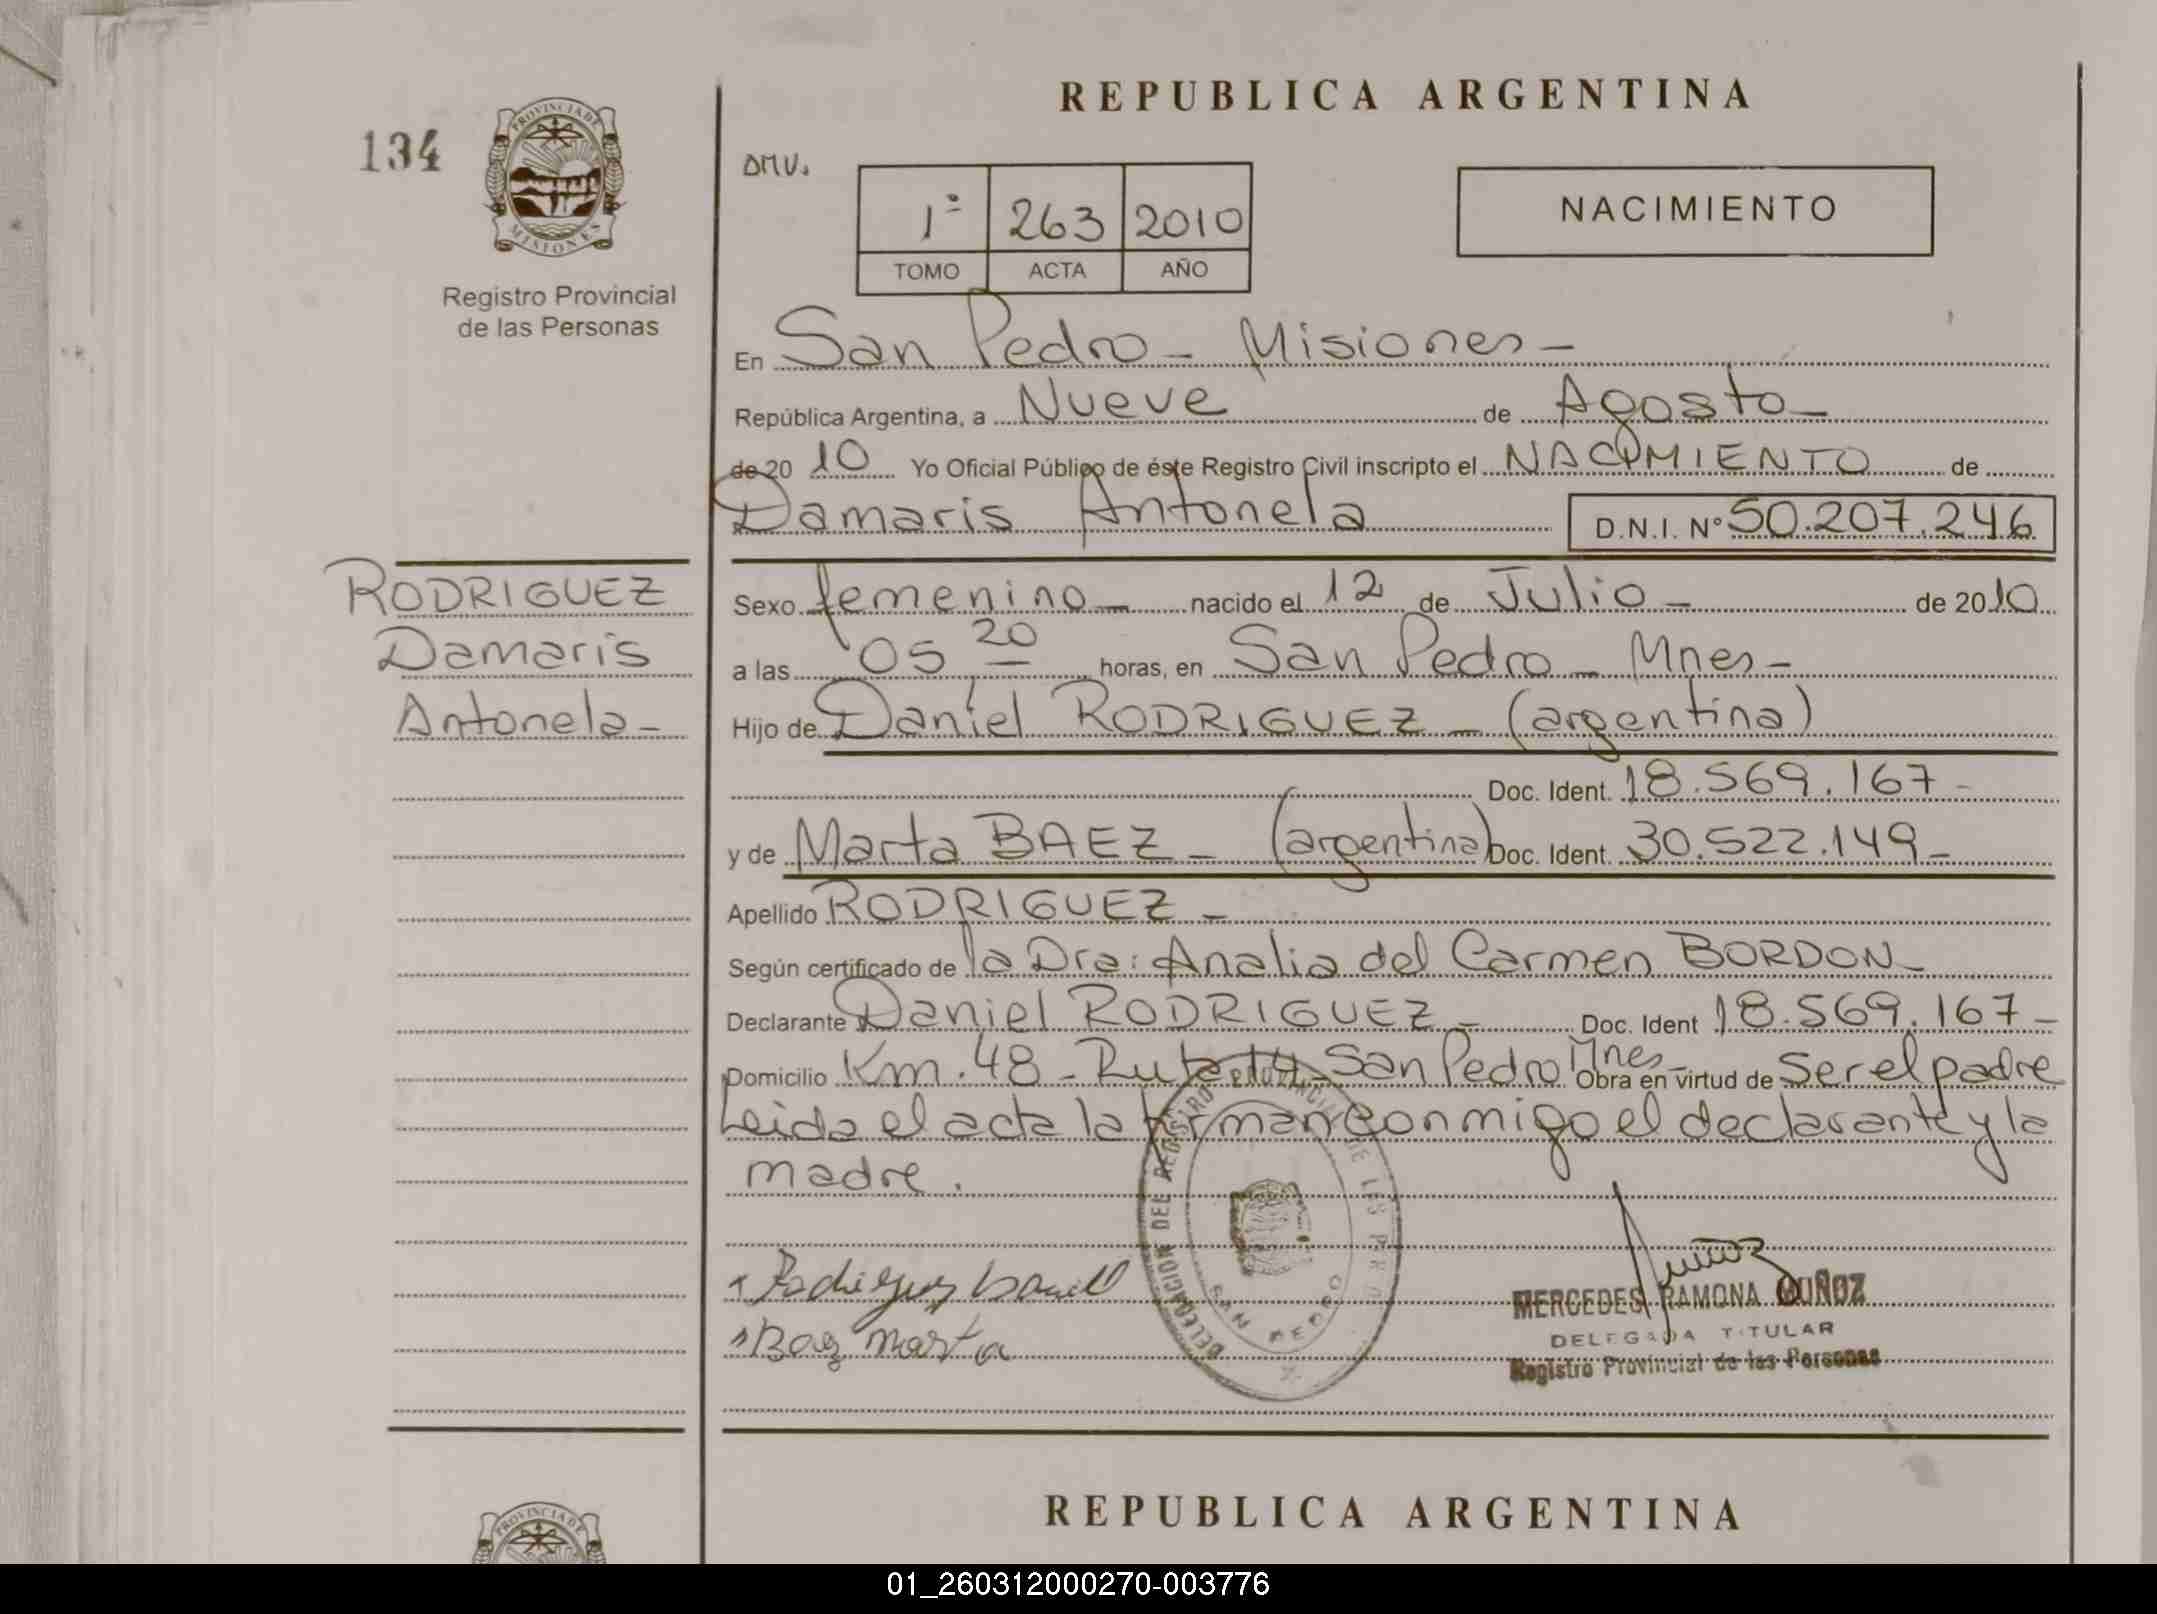 REPUBLICA ARGENTINA
134
PROVINCIA DE
MISIONES
Registro Provincial
de las Personas
DMV.
1º 263 2010
TOMO ACTA AÑO
NACIMIENTO
En San Pedro - Misiones -
República Argentina, a Nueve de Agosto -
de 20 10 Yo Oficial Público de éste Registro Civil inscripto el NACIMIENTO de
Damaris Antonela D.N.I. Nº 50.207.246
RODRIGUEZ
Damaris
Antonela -
Sexo femenino - nacido el 12 de Julio - de 20 10
a las 05 20 horas, en San Pedro - Mnes -
Hijo de Daniel RODRIGUEZ - (argentina)
Doc. Ident. 18.569.167 -
y de Marta BAEZ - (argentina) Doc. Ident. 30.522.149 -
Apellido RODRIGUEZ -
Según certificado de la Dra: Analia del Carmen BORDON -
Declarante Daniel RODRIGUEZ - Doc. Ident 18.569.167 -
Domicilio Km. 48 - Ruta 14 - San Pedro Mnes - Obra en virtud de ser el padre
Leida el acta la firman conmigo el declarante y la
madre.
DELEGACION DEL REGISTRO PROVINCIAL DE LAS
SAN PEDRO
Muñoz
Rodriguez Daniel
Baez Marta
MERCEDES RAMONA MUÑOZ
DELEGADA TITULAR
Registro Provincial de las Personas
REPUBLICA ARGENTINA
PROVINCIA DE
01_260312000270-003776